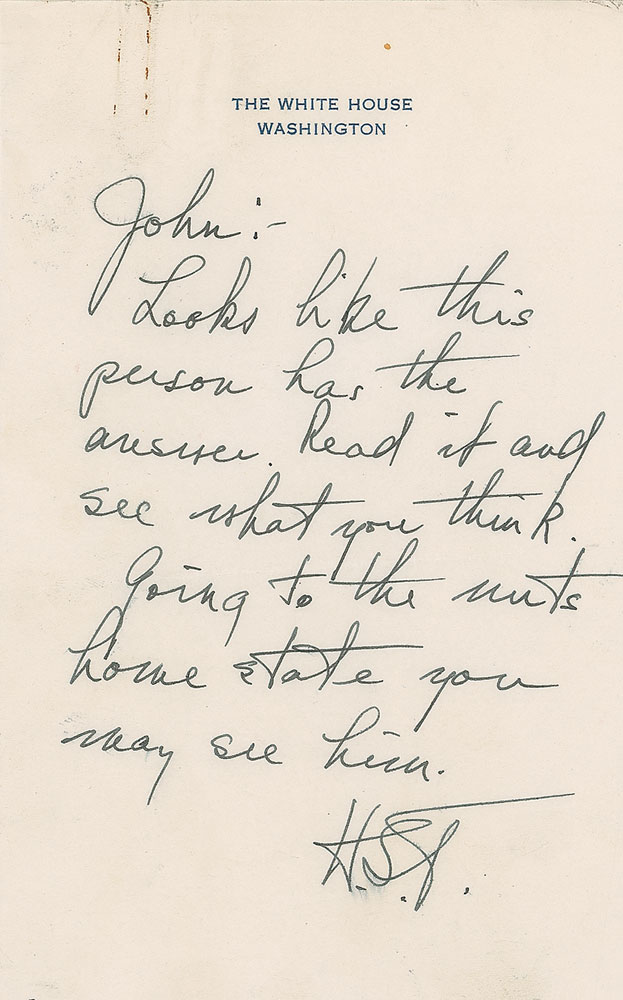 THE WHITE HOUSE
WASHINGTON
John:-
Looks like this
person has the
answer. Read it and
see what you think.
Going to the nuts
home state you
may see him.
H.S.T.